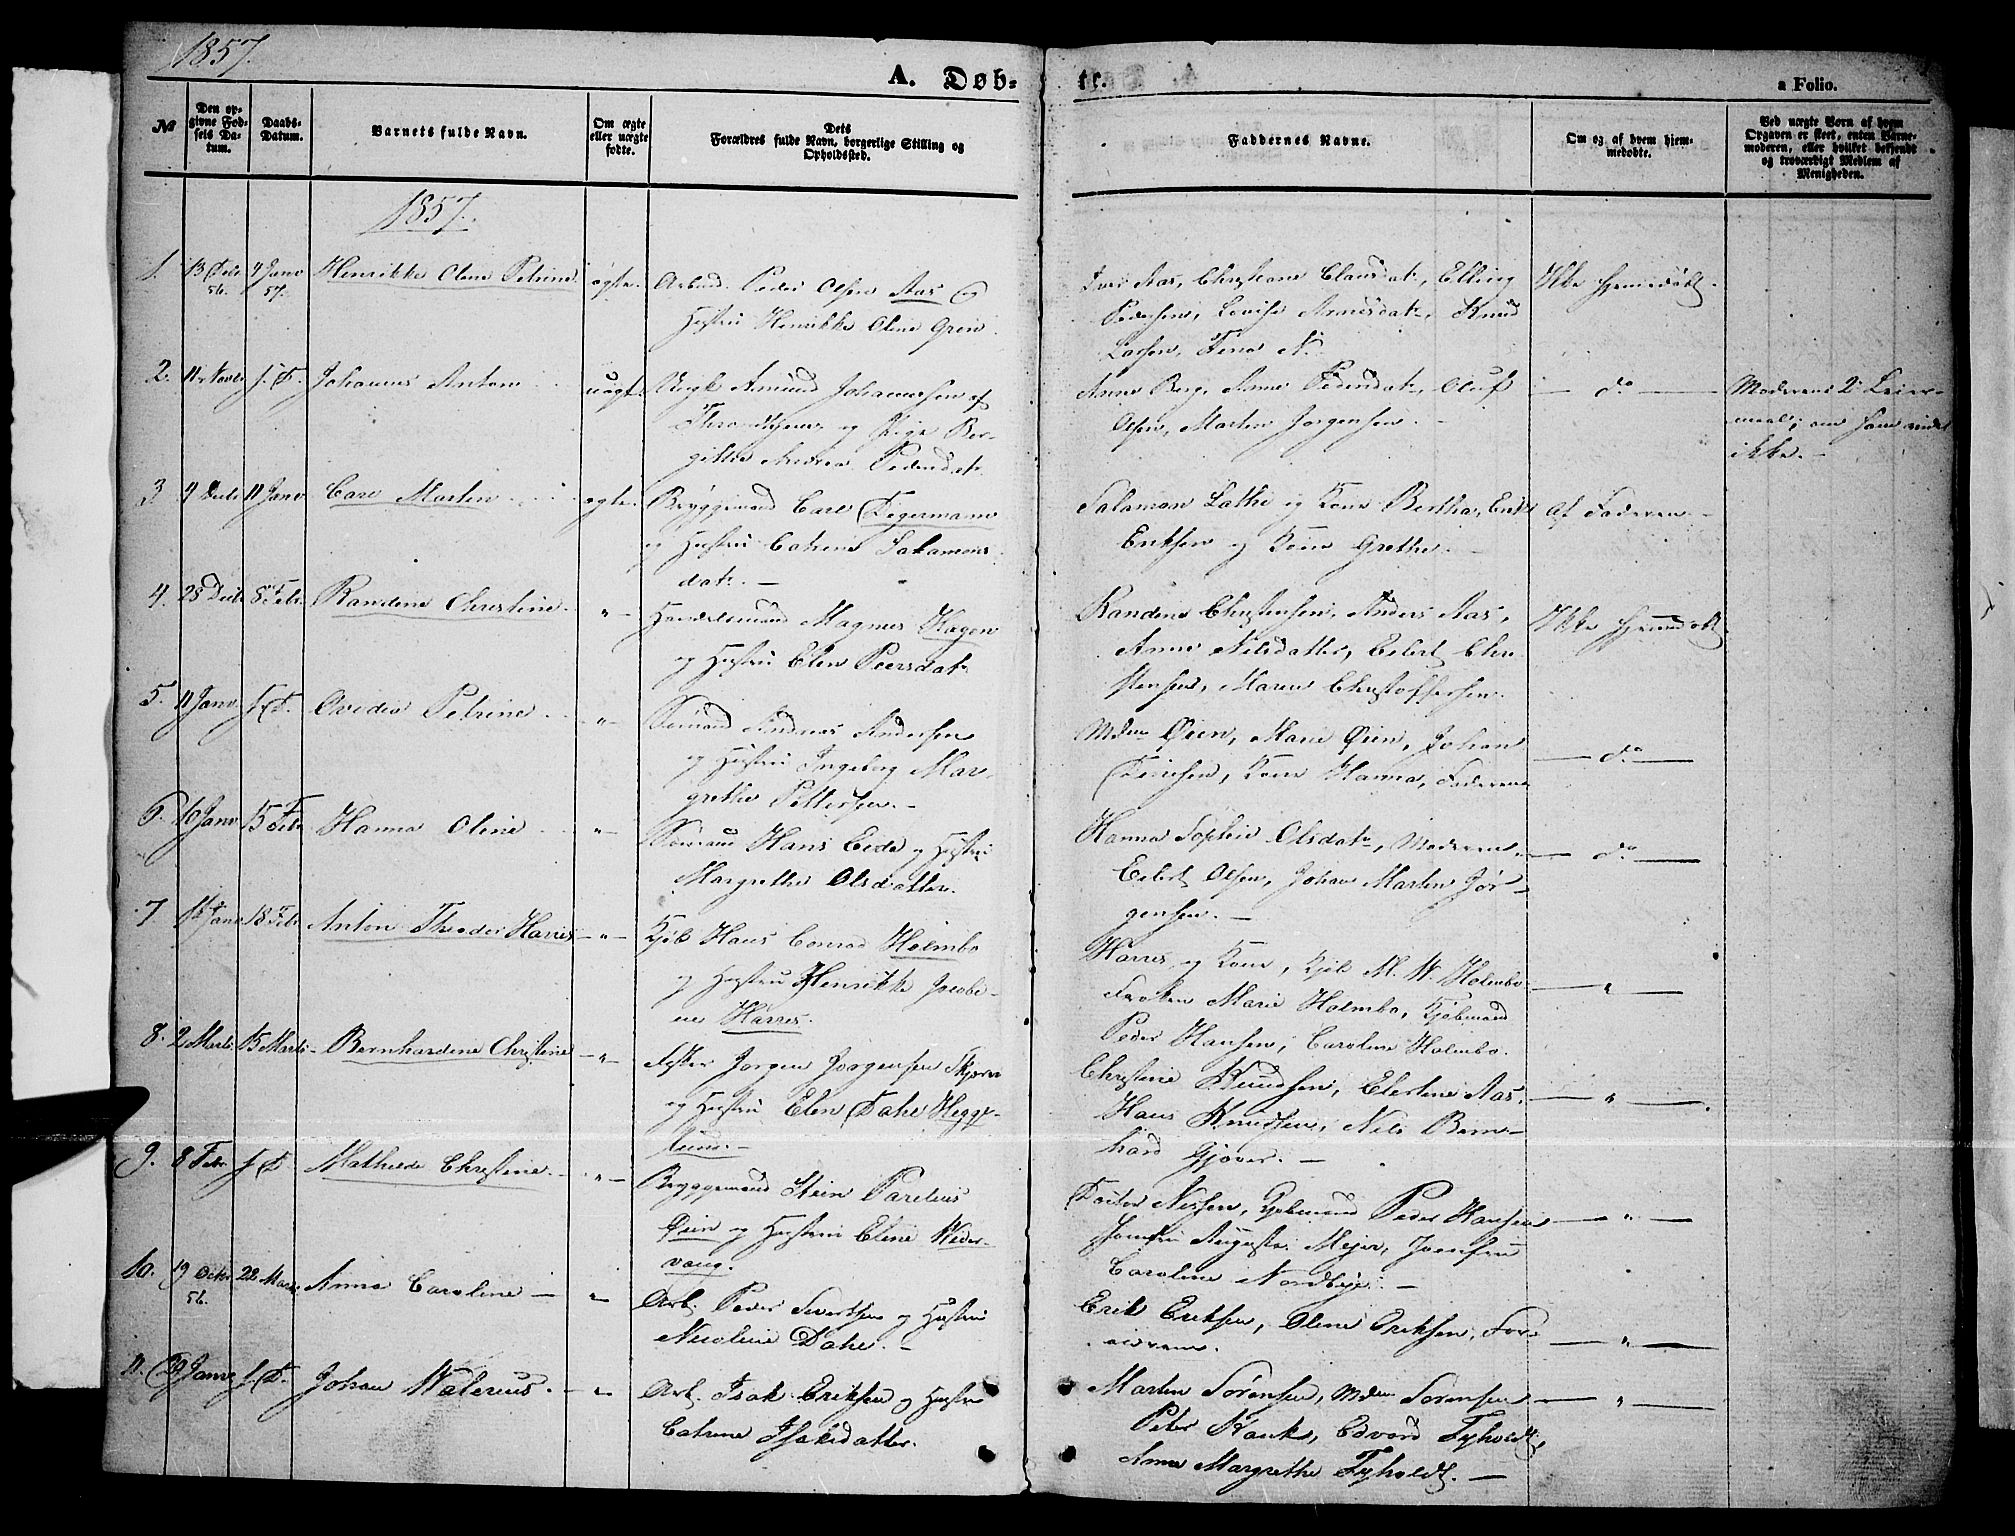 1857.
A. Døb-
te.
a Folio.
№
Den opgivne Fodsels Datum.
Daabs-Datum.
Barnets fulde Navn.
Om ægte eller uægte fodte.
Dets Forældres fulde Navn, borgerlige Stilling og Opholdssted.
Faddernes Navne.
Om og af hvem hjemmedøbte.
Ved uægte Born af hvem Opgaven er skeet, enten Barnemoderen, eller hvilket bekjendt og troværdigt Medlem af Menigheden.
1857.
1. 13 Decbr 56. 4 Janv 57. Henrikke Oline Petrine ægte. Arbmd. Peder Olsen Aas og
Hustru Henrikke Oline Grøn.
Iver Aas, Christiane Clausdatr, Elling Ikke hjemmedøbt.
Pedersen, Lovise Arnesdatr, Knud
Larsen, Fina N.
2. 11 Novbr s. D. Johannes Anton uægte. Ungk Amund Johannesen af
Throndhjem og Pige Ber-
gitthe Andrea Pedersdatr
Anne Berg, Anne Pedersdatr, Oluf — do — Moderens 2de Leier-
Olsen, Martin Jørgensen. maal; om hans vides
ikke. —
3 9 Decbr 11 Janv Carl Martin ægte. Bryggemand Carl Degermann
og Hustru Catrine Salamons
datr. —
Salamon Lathi og Kone Bertha, Erik Af Faderen —
Eriksen og Kone Grethe. —
4. 28 Decbr 8 Febr. Randine Christine. " Handelsmand Magnus Hagen
og Hustru Elen Peersdatr
Randine Christensen, Anders Aas, Ikke hjemmedøbt
Anne Nilsdatter, Eilert Chri-
stensen, Maren Christoffersen.
5. 11 Janv. s. D. Ovidia Petrine. " Sømand Andreas Andersen
og Hustru Ingeborg Mar-
grethe Pettersen. —
Mdm Øien, Marie Øien, Johan — do —
Kone Hanna, Faderen
6. 10 Janv 15 Febr Hanna Oline " Sømand Hans Eide og Hustru
Margrethe Olsdatter.
Hanna Sophie Olsdatr, Moderen, — do —
Eilert Olsen, Johan Martin Jør-
gensen. —
7 Janv 18 Febr Anton Theodor Harris " Kjøb Hans Conrad Holmbo
og Hustru Henrikke Jacobi-
ne Harres.
Harres og Kone, Kjøb M. W. Holmbo — " —
Frøken Marie Holmbo, Kjøbmand
Peder Hansen, Caroline Holmbo.
8. 2 Marts 15 Marts Bernhardine Christine " Jørgen Jørgensen
og Hustru Elen Dahe Hegge-
lund. —
Christine Knudsen, Elertine Aas, — " —
Hans Knudsen, Nils Bern-
hard Gjøver. —
9. 8 Febr s. D Mathilde Christine. " Bryggemand Stein Parelius
Øien og Hustru Eline Weder-
vang.
Doctor Nissen, Kjøbmand Peder Hansen — " —
Jomfru Augusta Mejer, Jomfru
Caroline Nordbye. —
10. 19 Octbr 56. 22 Marts Anna Caroline — " Arb. Peder Sivertsen og Hustru
Nicoline Dahl. —
Erik Eriksen, Oline Eriksen, For- — " —
ældrene.
11. 29 Janv s. D. Johan Walerius. " Arb. Isak Eriksen og Hustru
Catrine Isaksdatter.
Martin Sørensen, Mdm Sørensen — " —
Peter Kank, Edvard Fyholdt,
Anne Margrethe Fyholdt. —